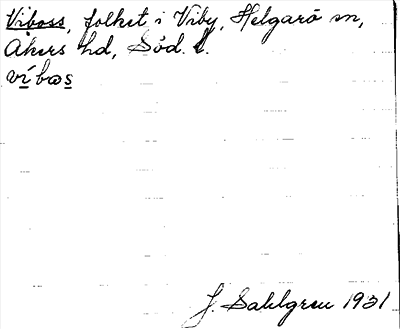 Viboss, folket i Viby, Helgarö sn,
Åkers hd, Söd. l.
víbos
J. Sahlgren 1931